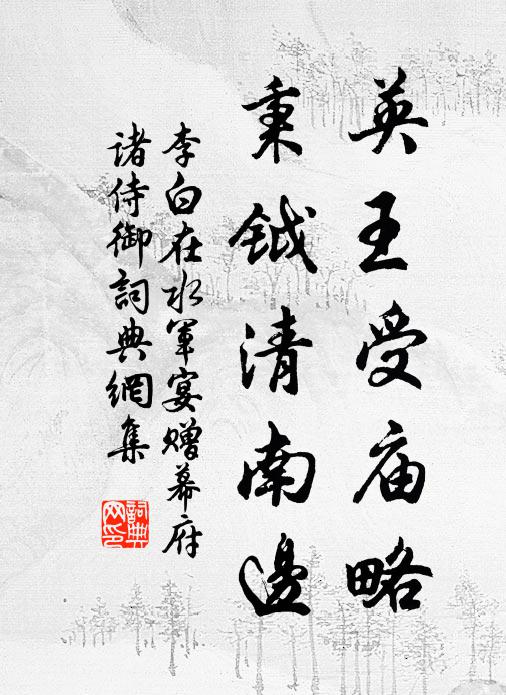 英王受庙略
秉钺清南邊
李白在水军宴赠幕府
诸侍御詞典網集
詞典
网印